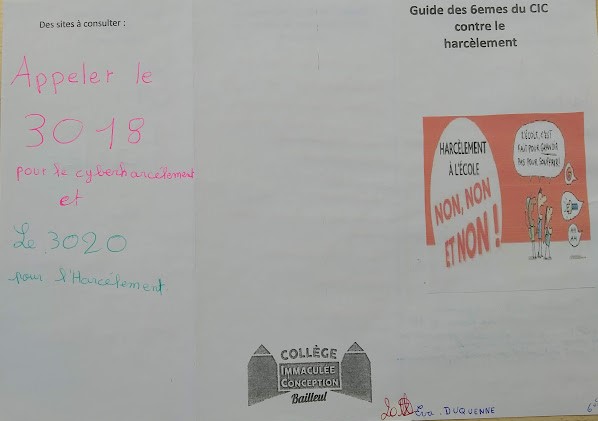 Des sites à consulter :
Appeler le
3018
pour le cyberharcèlement
et
Le 3020
pour l'Harcèlement.
COLLÈGE
IMMACULÉE
CONCEPTION
Bailleul
Guide des 6emes du CIC
contre le
harcèlement
HARCÈLEMENT
À L'ÉCOLE
NON, NON
ET NON !
L'ÉCOLE, C'EST
FAIT POUR GRANDIR
PAS POUR SOUFFRIR !
Eva DUQUENNE